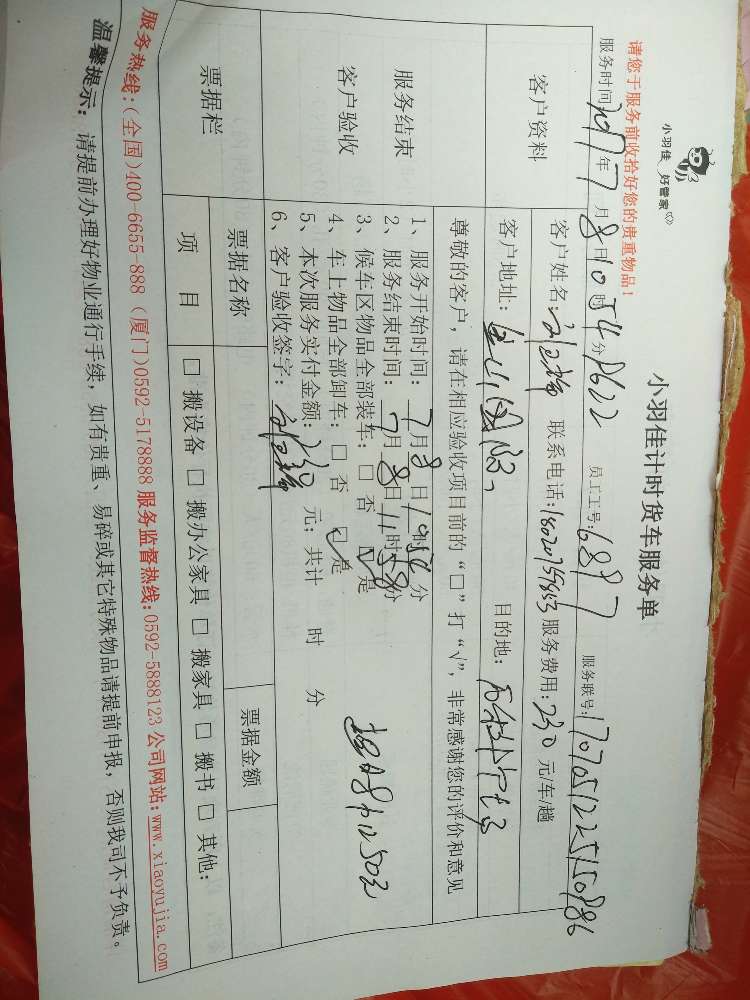 小羽佳 好管家
小羽佳计时货车服务单
请您于服务前收拾好您的贵重物品！
服务时间 2017年7月8日10时54分 员工工号：6897 服务联号：1707051225150886
客户资料
客户姓名： 联系电话： 服务费用：230元/车/趟
客户地址： 目的地：
尊敬的客户，请在相应验收项目前的“□”打“√”，非常感谢您的评价和意见
服务结束
客户验收
1、服务开始时间：7月8日10时54分
2、服务结束时间：7月8日11时58分
3、候车区物品全部装车：□否 ☑是
4、车上物品全部卸车：□否 ☑是
5、本次服务实付金额：230元；共计 时 分
6、客户验收签字：
票据栏
票据名称 票据金额
项目 □搬设备 □搬办公家具 □搬家具 □搬书 □其他：
服务热线：(全国)400-6655-888 (厦门)0592-5178888 服务监督热线：0592-5888123 公司网站：www.xiaoyujia.com
温馨提示：请提前办理好物业通行手续，如有贵重、易碎或其它特殊物品请提前申报，否则我司不予负责。